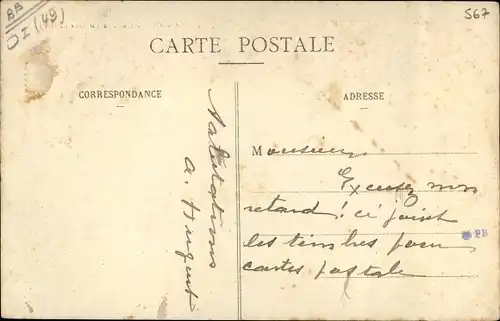 BB
OI (49)
567
CARTE POSTALE
CORRESPONDANCE
ADRESSE
Salutations
Monsieur
Excusez mon
retard! ci joint
les timbres pour
cartes postale
PB